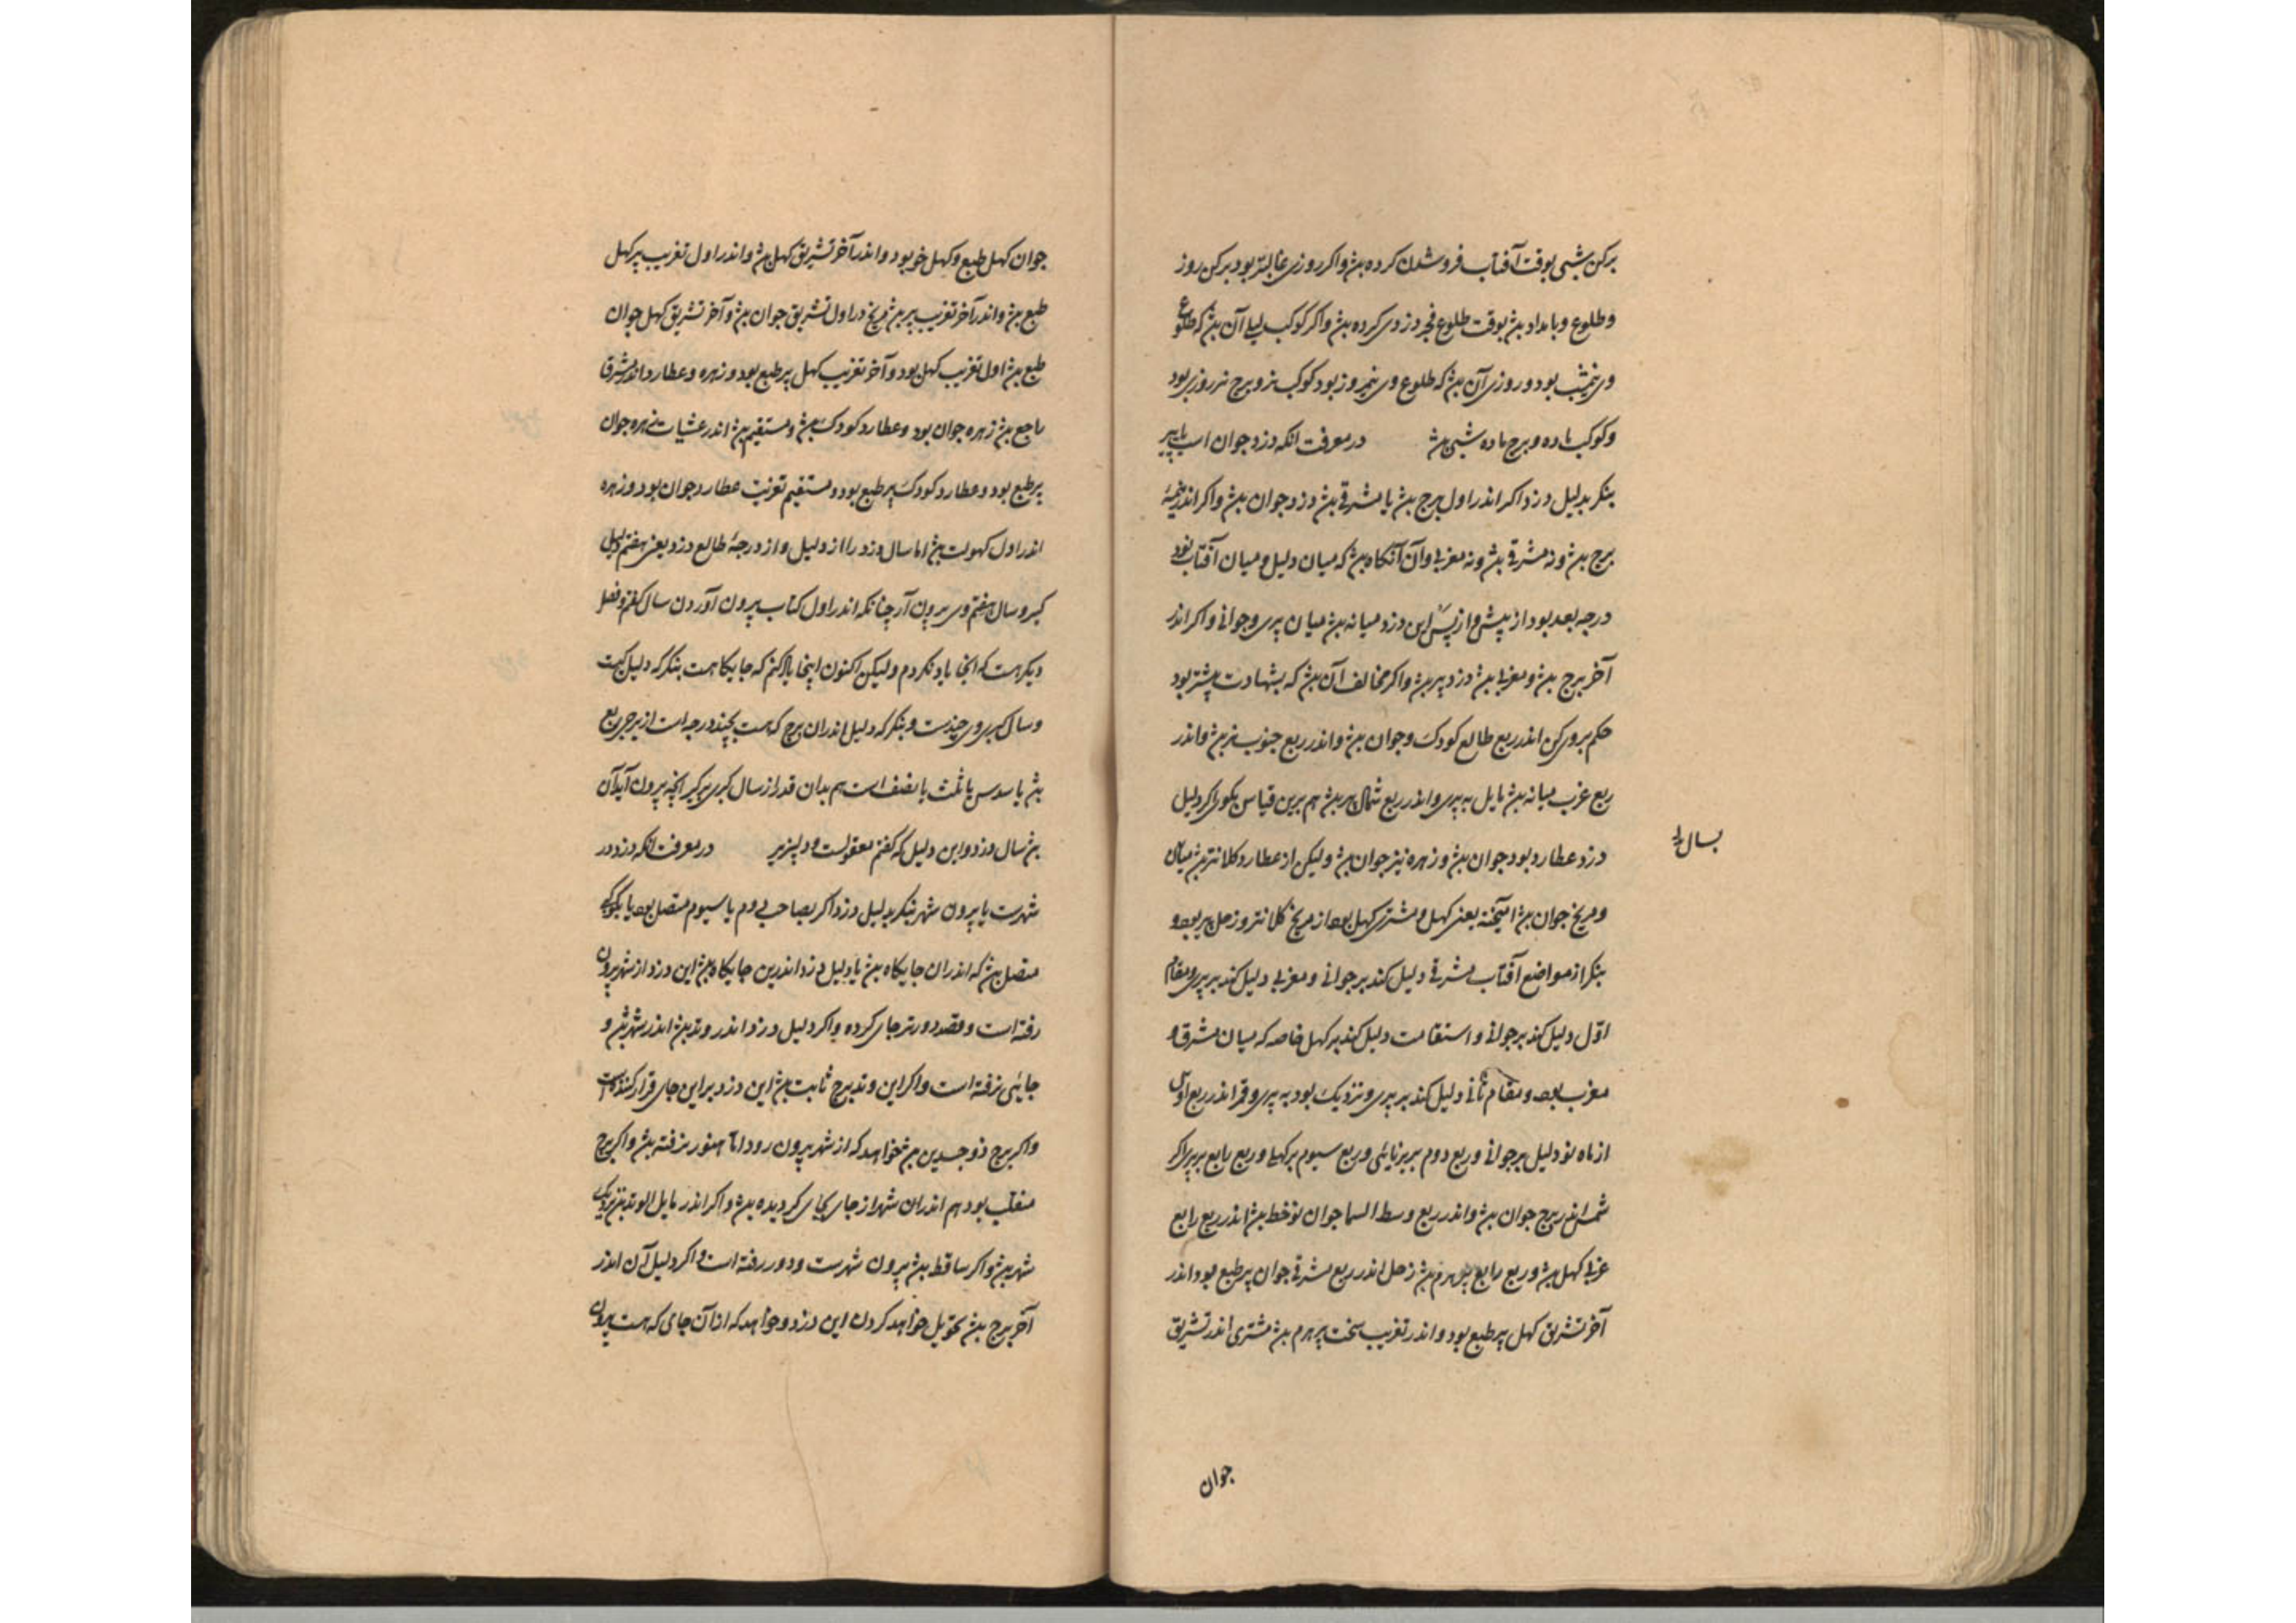 برکن شبی بوقت آفتاب فروشدن کرده بشد واکر روزی غالبتر بود برکن روز
وطلوع وبامداد بشد بوقت طلوع فجر دزدی کرده بشد واکر کوکب لیلی آن بشد که طلوع
وی نیمشب بود و روزی آن بشد که طلوع وی نیمروز بود کوکب نر وبرج نر روزی بود
وکوکب ماده وبرج ماده شبی بشد در معرفت انکه دزد جوان است یا پیر
بنکر بدلیل دزد اکر اندر اول برج بشد یا مشرقی بشد دزد جوان بشد واکر اندر نیمهٔ
برج بشد ونه مشرقی بشد ونه مغربی وآن آنکاه بشد که میان دلیل ومیان آفتاب نود
درجه بعد بود از پیش واز پس این دزد میانه بشد میان پیری وجوانی واکر اندر
آخر برج بشد ومغربی بشد دزد پیر بشد واکر مخالف آن بشد که بشهادت بیشتر بود
حکم بروی کن اندر ربع طالع کودک وجوان بشد واندر ربع جنوب بشد واندر
ربع غرب میانه بشد مایل به پیری واندر ربع شمال پیر بشد هم برین قیاس اکر دلیل
دزد عطارد بود جوان بشد وزهره نیز جوان بشد ولیکن از عطارد کلانتر بشد
بسال
ومریخ جوان بشد آمیخته یعنی کهل ومشتری کهل بود از مریخ کلانتر وزحل پیر بود و
بنکر از مواضع آفتاب مشرقی دلیل کند بر جوانی ومغربی دلیل کند بر پیری ومقام
اوّل دلیل کند بر جوانی واستقامت دلیل کند بر کهل خاصه که میان مشرق و
مغرب بود ومقام ثانی دلیل کند بر پیری ونزدیک بود به پیری وقمر اندر ربع اول
از ماه نو دلیل بر جوانی وربع دوم بر برنایی وربع سیوم بر کهلی وربع رابع بر پیری اکر
شمس اندر برج جوان بشد واندر ربع وسط السما جوان نوخط بشد اندر ربع رابع
غربی کهل بشد وربع رابع هرم بشد زحل اندر ربع مشرقی جوان پیر طبع بود اندر
آخر تشریق کهل پیر طبع بود واندر تغریب سخت پیر هرم بشد مشتری اندر تشریق
جوان
جوان کهل طبع وکهل خو بود واندر آخر تشریق کهل بشد واندر اول تغریب پیر کهل
طبع بشد واندر آخر تغریب پیر بشد مریخ در اول تشریق جوان بشد وآخر تشریق کهل جوان
طبع بشد اول تغریب کهل بود وآخر تغریب کهل پیر طبع بود وزهره وعطارد اندر
راجع بشد زهره جوان بود وعطارد کودک بشد ومستقیم بشد اندر عشیات زهره جوان
پیر طبع بود وعطارد کودک پیر طبع بود ومستقیم تغریب عطارد جوان بود وزهره
اندر اول کهولت بشد اما سال دزد را از دلیل واز درجهٔ طالع دزد یعنی هفتم دلیل
کیر وسال هفتم وی بیرون آر چنانکه اندر اول کتاب بیرون آوردن سال کفتم وفصل
دیکر هست که آنجا یاد نکردم ولیکن اکنون اینجا یاد کنم که جایکاهست بنکر که دلیل کیست
وسال کبری وی چندست وبنکر که دلیل اندران برج که هست بچند درجه است از برج ربع
بشد یا سدس یا ثلث یا نصف است هم بدان قدر از سال کبری برکیر انچه بیرون آید آن
بشد سال دزد واین دلیل که کفتم معقولست ودلپذیر در معرفت انکه دزد در
شهرست یا بیرون شهر بنکر بدلیل دزد اکر بصاحب دوم یا سیوم متصل بود یا بکوکبی
متصل بشد که اندران جایکاه بشد یا دلیل دزد اندرین جایکاه بشد این دزد از شهر بیرون
رفته است وقصد دورتر جای کرده واکر دلیل دزد اندر وتد بشد اندر شهر بشد و
جایی نرفته است واکر این وتد برج ثابت بشد این دزد بر این جای قرار کننده است
واکر برج ذوجسدین بشد خواهد که از شهر بیرون رود اما هنوز نرفته بشد واکر برج
منقلب بود هم اندران شهر از جای بجای کردیده بشد واکر اندر مایل الوتد بشد نزدیک
شهر بشد واکر ساقط بشد بیرون شهرست ودور رفته است واکر دلیل آن اندر
آخر برج بشد تحویل خواهد کردن این دزد وخواهد که از آن جای که هست بیرون